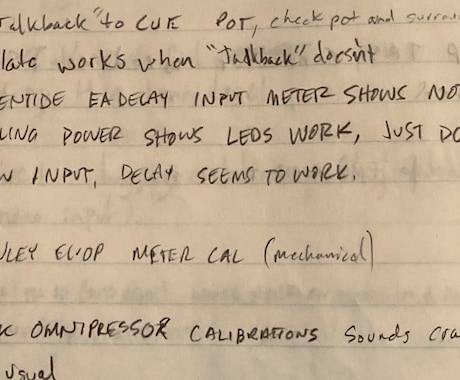 Talkback" to CUE POT, check pot and surroun
late works when "Talkback" doesn't
ENTIDE EADELAY INPUT METER SHOWS NO
LING POWER SHOWS LEDS WORK, JUST DO
W INPUT, DELAY SEEMS TO WORK.
LEY EL·OP METER CAL (mechanical)
K OMNIPRESSOR CALIBRATIONS Sounds cra
usual